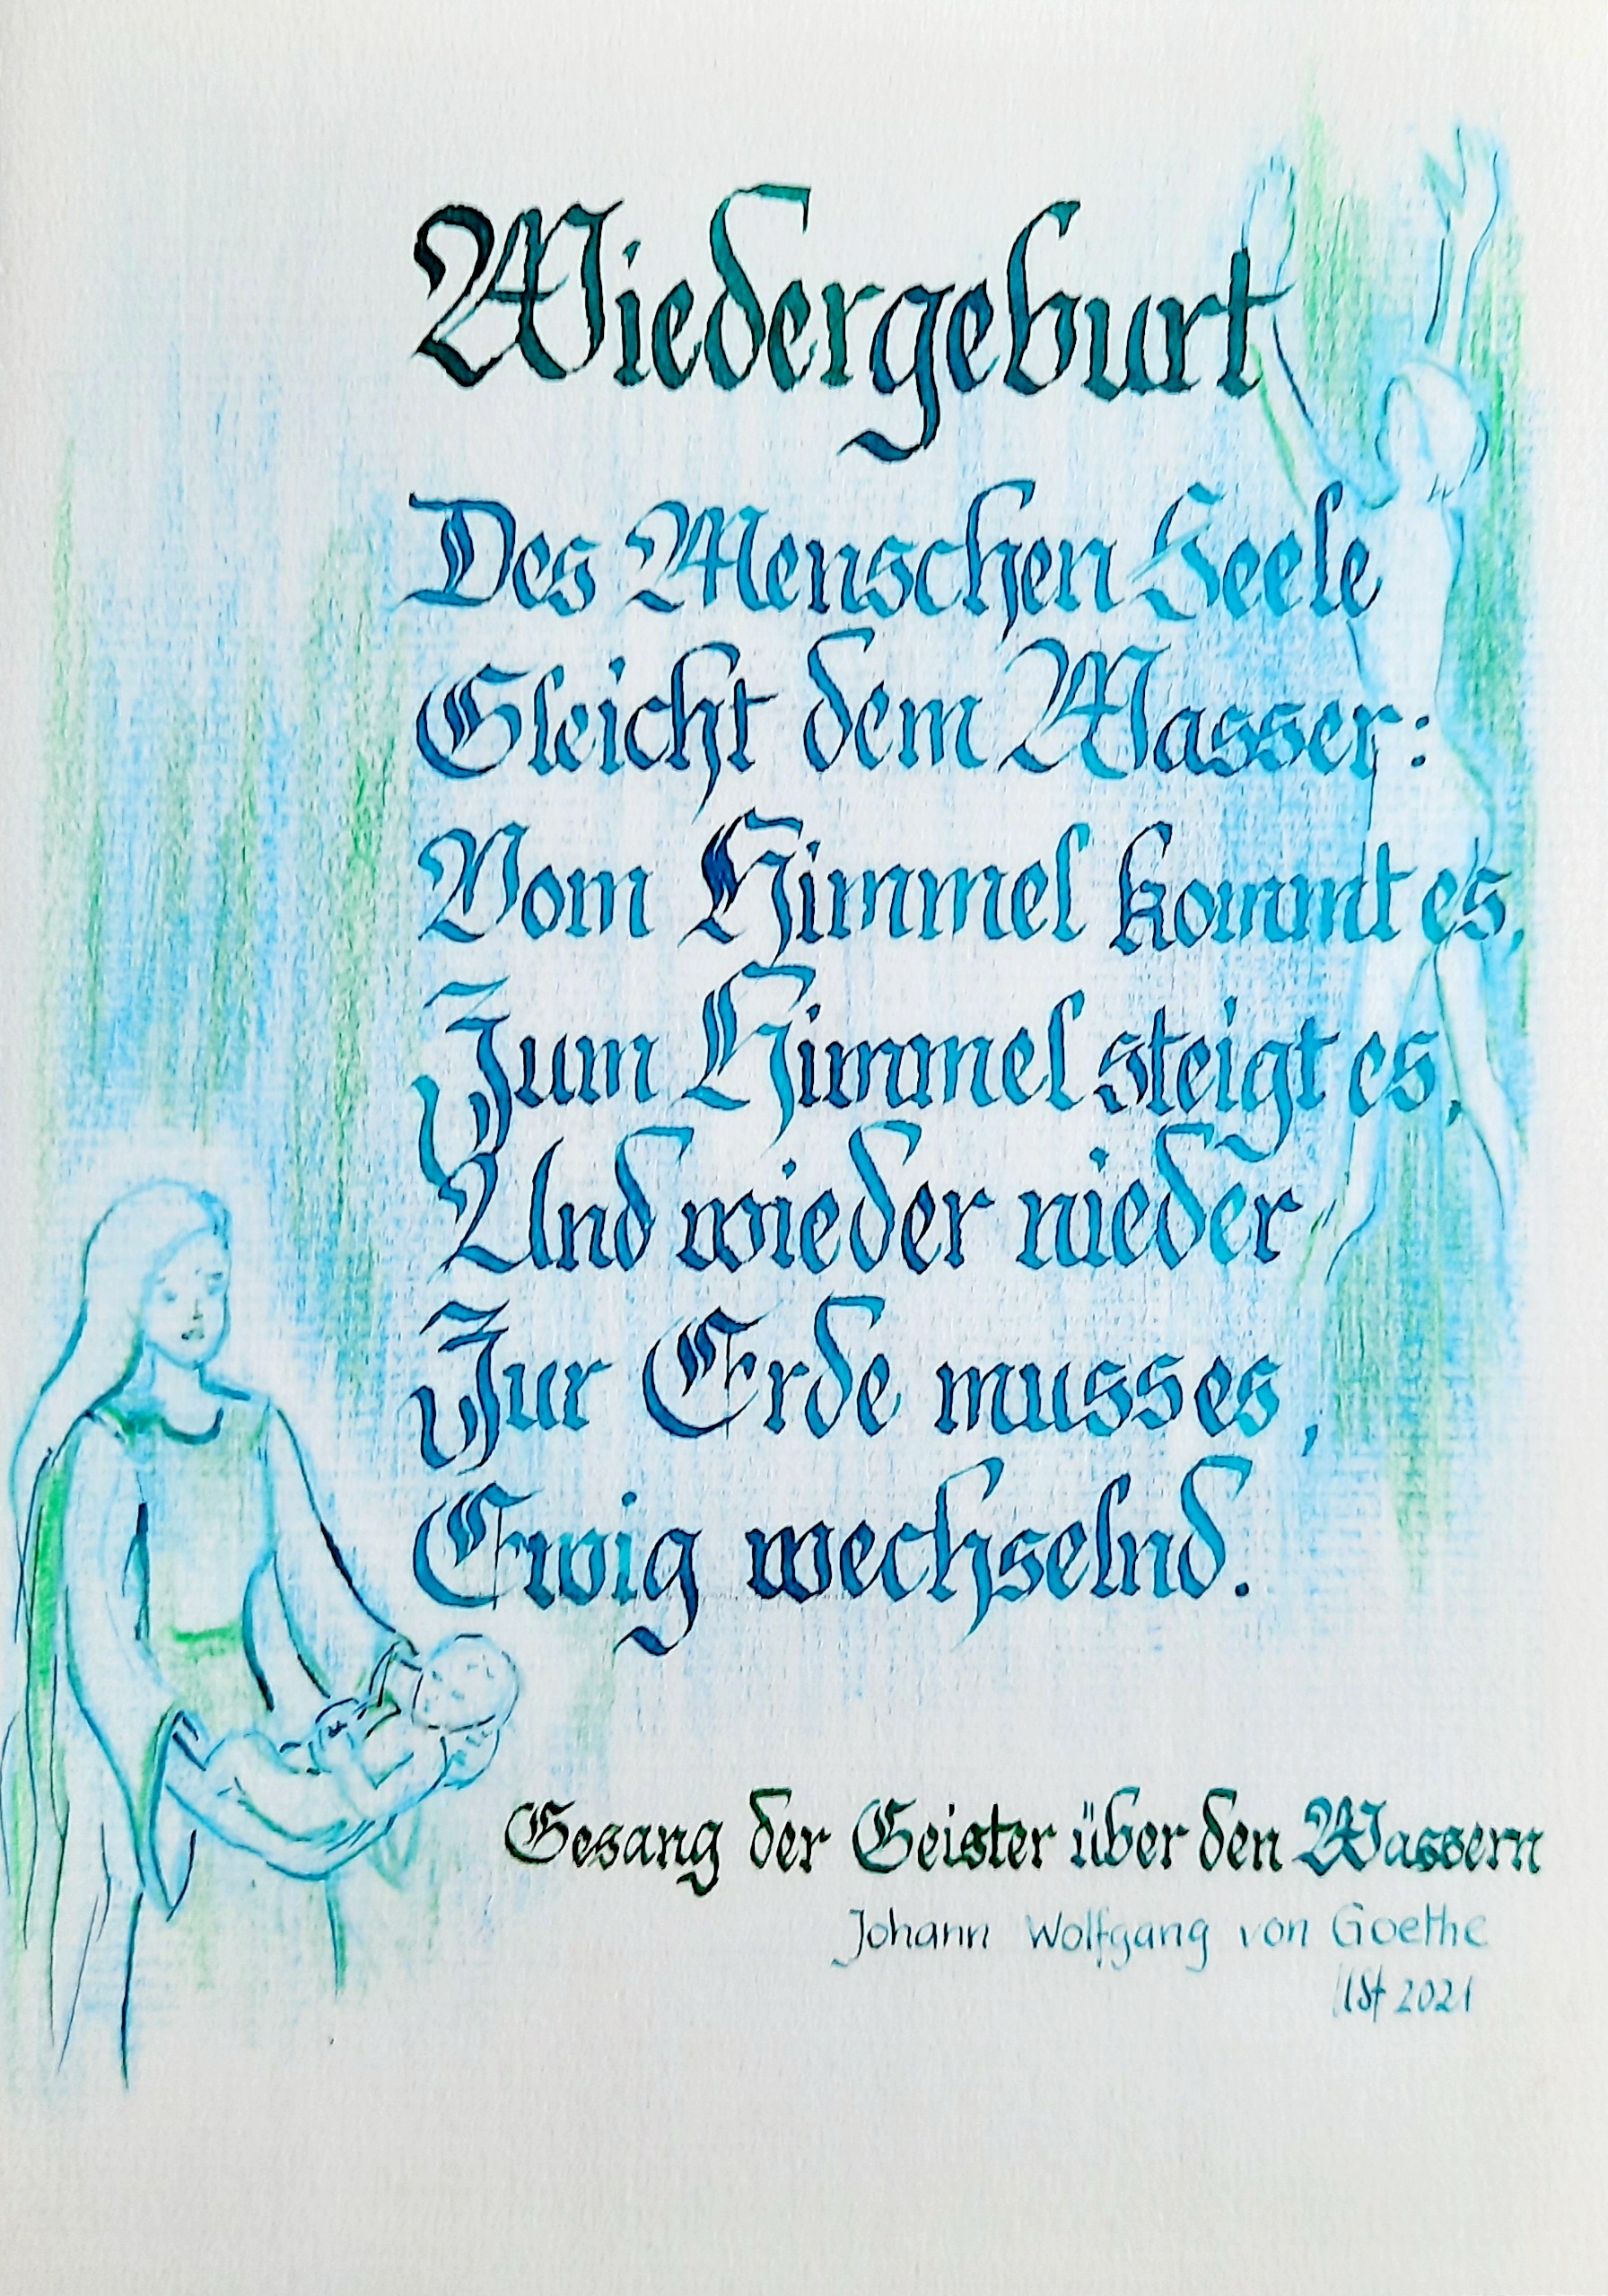 Wiedergeburt
Des Menschen Seele
Gleicht dem Wasser:
Vom Himmel kommt es,
Zum Himmel steigt es,
Und wieder nieder
Zur Erde muss es,
Ewig wechselnd.
Gesang der Geister über den Wassern
Johann Wolfgang von Goethe
2021